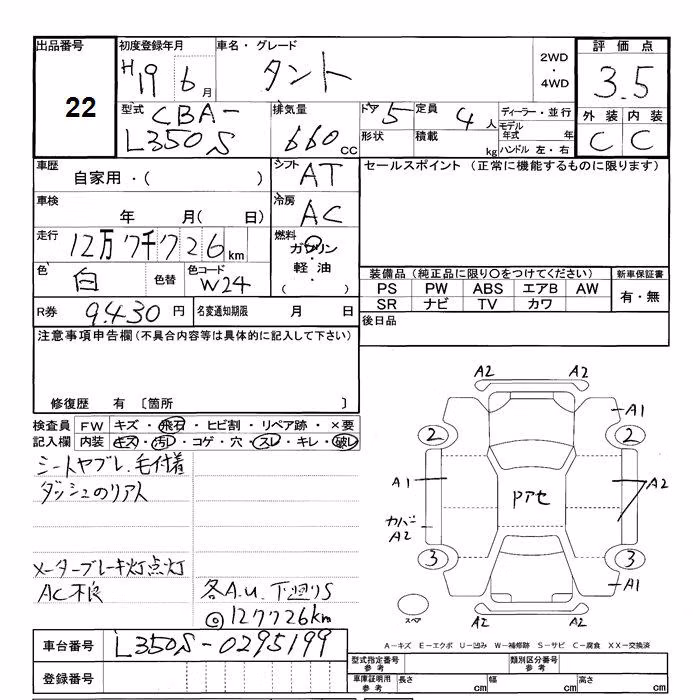 出品番号 初度登録年月 車名・グレード 2WD・4WD 評価点
22 H19 6月 タント 3.5
型式 CBA-L350S 排気量 660cc ドア 5 定員 4人 ディーラー・並行 外装 内装
形状 積載 kg モデル年式 年 C C
ハンドル 左・右
車歴 自家用・( ) シフト AT セールスポイント (正常に機能するものに限ります)
車検 年 月( 日) 冷房 AC
走行 12万7千726km 燃料 ガソリン・軽油・( )
色 白 色替 色コード W24 装備品(純正品に限り〇をつけてください) 新車保証書
PS PW ABS エアB AW 有・無
SR ナビ TV カワ
R券 9430円 名変通知期限 月 日 後日品
注意事項申告欄(不具合内容等は具体的に記入して下さい)
修復歴 有 〔箇所 〕
検査員記入欄 FW キズ・飛石・ヒビ割・リペア跡・×要
内装 キズ・汚・コゲ・穴・スレ・キレ・破レ
シートヤブレ.毛付着
ダッシュのリアト
メーターブレーキ灯点灯
AC不良 各A.U.下廻りS
◎127726km
A2 A2
A1
2 2
A1 A2
Pアセ
カバー A2
3 3
A1
スペア A2 A2
A-キズ E-エクボ U-凹み W-補修跡 S-サビ C-腐食 XX-交換済
車台番号 L350S-0295199
型式指定番号 参考 類別区分番号 参考
登録番号 車庫証明用 参考 長さ cm 幅 cm 高さ cm